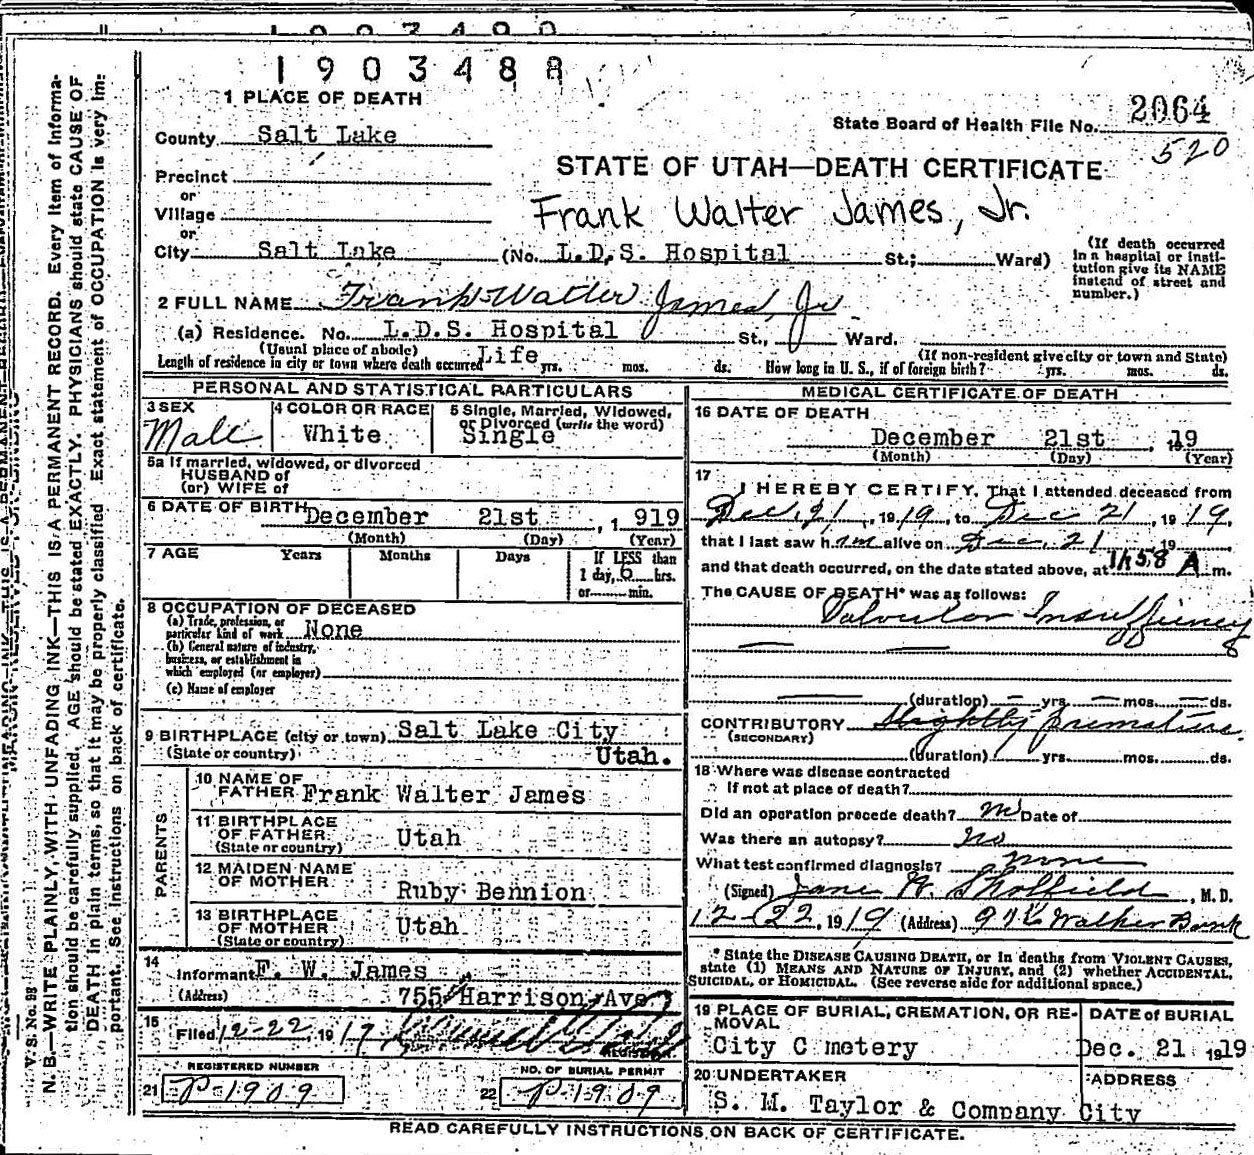 1903488
1 PLACE OF DEATH
State Board of Health File No. 2064
520
County Salt Lake
STATE OF UTAH—DEATH CERTIFICATE
Precinct
or
Village
Frank Walter James, Jr.
or
City Salt Lake (No. L.D.S. Hospital St.; Ward)
(If death occurred in a hospital or institution give its NAME instead of street and number.)
2 FULL NAME Frank Walter James, Jr
(a) Residence. No. L.D.S. Hospital St., Ward.
(Usual place of abode) (If non-resident give city or town and State)
Length of residence in city or town where death occurred Life yrs. mos. ds. How long in U. S., if of foreign birth? yrs. mos. ds.
PERSONAL AND STATISTICAL PARTICULARS
3 SEX 4 COLOR OR RACE 5 Single, Married, Widowed, or Divorced (write the word)
Male White Single
5a If married, widowed, or divorced
HUSBAND of
(or) WIFE of
6 DATE OF BIRTH December 21st, 1 919
(Month) (Day) (Year)
7 AGE Years Months Days If LESS than
1 day, 6 hrs.
or min.
8 OCCUPATION OF DECEASED
(a) Trade, profession, or
particular kind of work None
(b) General nature of industry,
business, or establishment in
which employed (or employer)
(c) Name of employer
9 BIRTHPLACE (city or town) Salt Lake City
(State or country) Utah.
PARENTS
10 NAME OF
FATHER Frank Walter James
11 BIRTHPLACE
OF FATHER Utah
(State or country)
12 MAIDEN NAME
OF MOTHER Ruby Bennion
13 BIRTHPLACE
OF MOTHER Utah
(State or country)
14
Informant F. W. James
(Address) 755 Harrison Ave.
15
Filed 12-22, 19 19
REGISTRAR
REGISTERED NUMBER
21 P-1909
NO. OF BURIAL PERMIT
22 P-1909
MEDICAL CERTIFICATE OF DEATH
16 DATE OF DEATH
December 21st, 19
(Month) (Day) (Year)
17
I HEREBY CERTIFY, That I attended deceased from
Dec. 21, 1919, to Dec 21, 1919.
that I last saw him alive on Dec. 21, 19
and that death occurred, on the date stated above, at 11:58 A m.
The CAUSE OF DEATH* was as follows:
Valvular Insufficiency
(duration) yrs. mos. ds.
CONTRIBUTORY Slightly premature.
(SECONDARY)
(duration) yrs. mos. ds.
18 Where was disease contracted
If not at place of death?
Did an operation precede death? no Date of
Was there an autopsy? no
What test confirmed diagnosis? none
(Signed) Jane W. Skolfield, M. D.
12-22, 1919 (Address) 916 Walker Bank
* State the DISEASE CAUSING DEATH, or in deaths from VIOLENT CAUSES,
state (1) MEANS AND NATURE OF INJURY, and (2) whether ACCIDENTAL,
SUICIDAL, or HOMICIDAL. (See reverse side for additional space.)
19 PLACE OF BURIAL, CREMATION, OR REMOVAL DATE of BURIAL
City C metery Dec. 21 1919
20 UNDERTAKER ADDRESS
S. M. Taylor & Company City
READ CAREFULLY INSTRUCTIONS ON BACK OF CERTIFICATE.
V. S. No. 98
N. B.—WRITE PLAINLY WITH UNFADING INK—THIS IS A PERMANENT RECORD. Every item of informa-
tion should be carefully supplied. AGE should be stated EXACTLY. PHYSICIANS should state CAUSE OF
DEATH in plain terms, so that it may be properly classified. Exact statement of OCCUPATION is very im-
portant. See instructions on back of certificate.